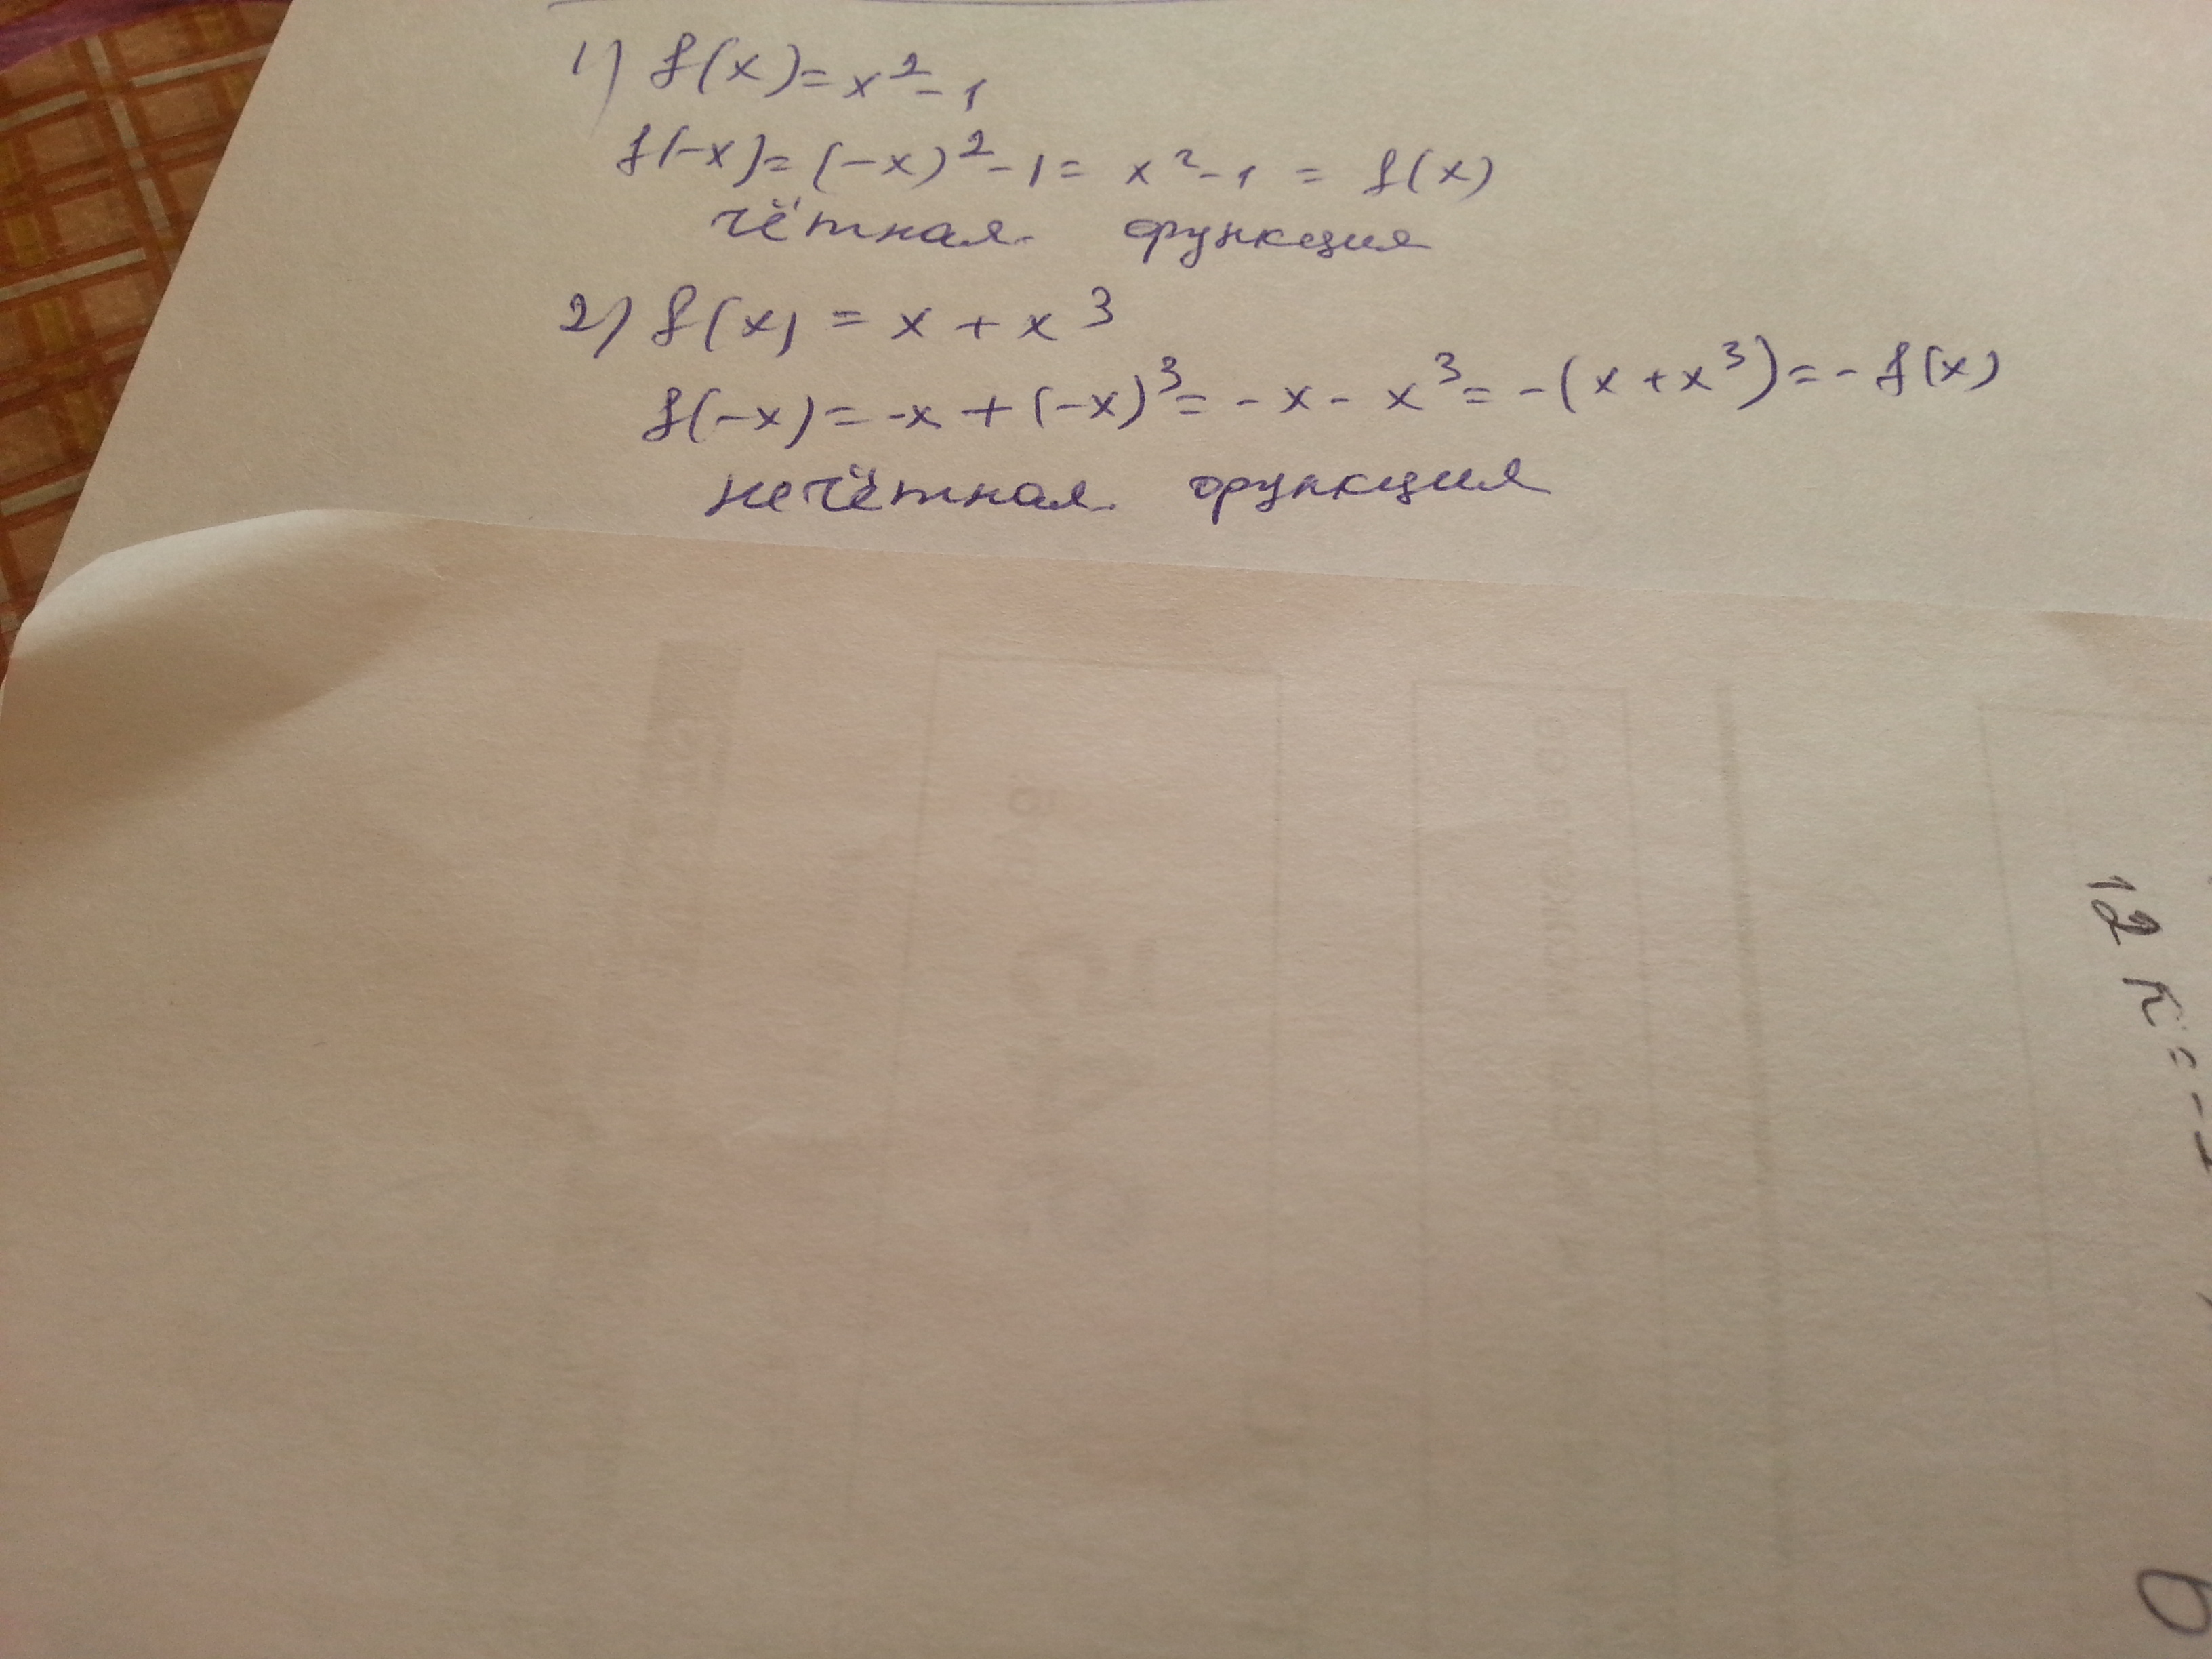 1) f(x)=x²-1
f(-x)=(-x)²-1= x²-1 = f(x)
чётная функция
2) f(x) = x + x³
f(-x)=-x+(-x)³=-x-x³=-(x+x³)=-f(x)
нечётная функция
12 К = - 1